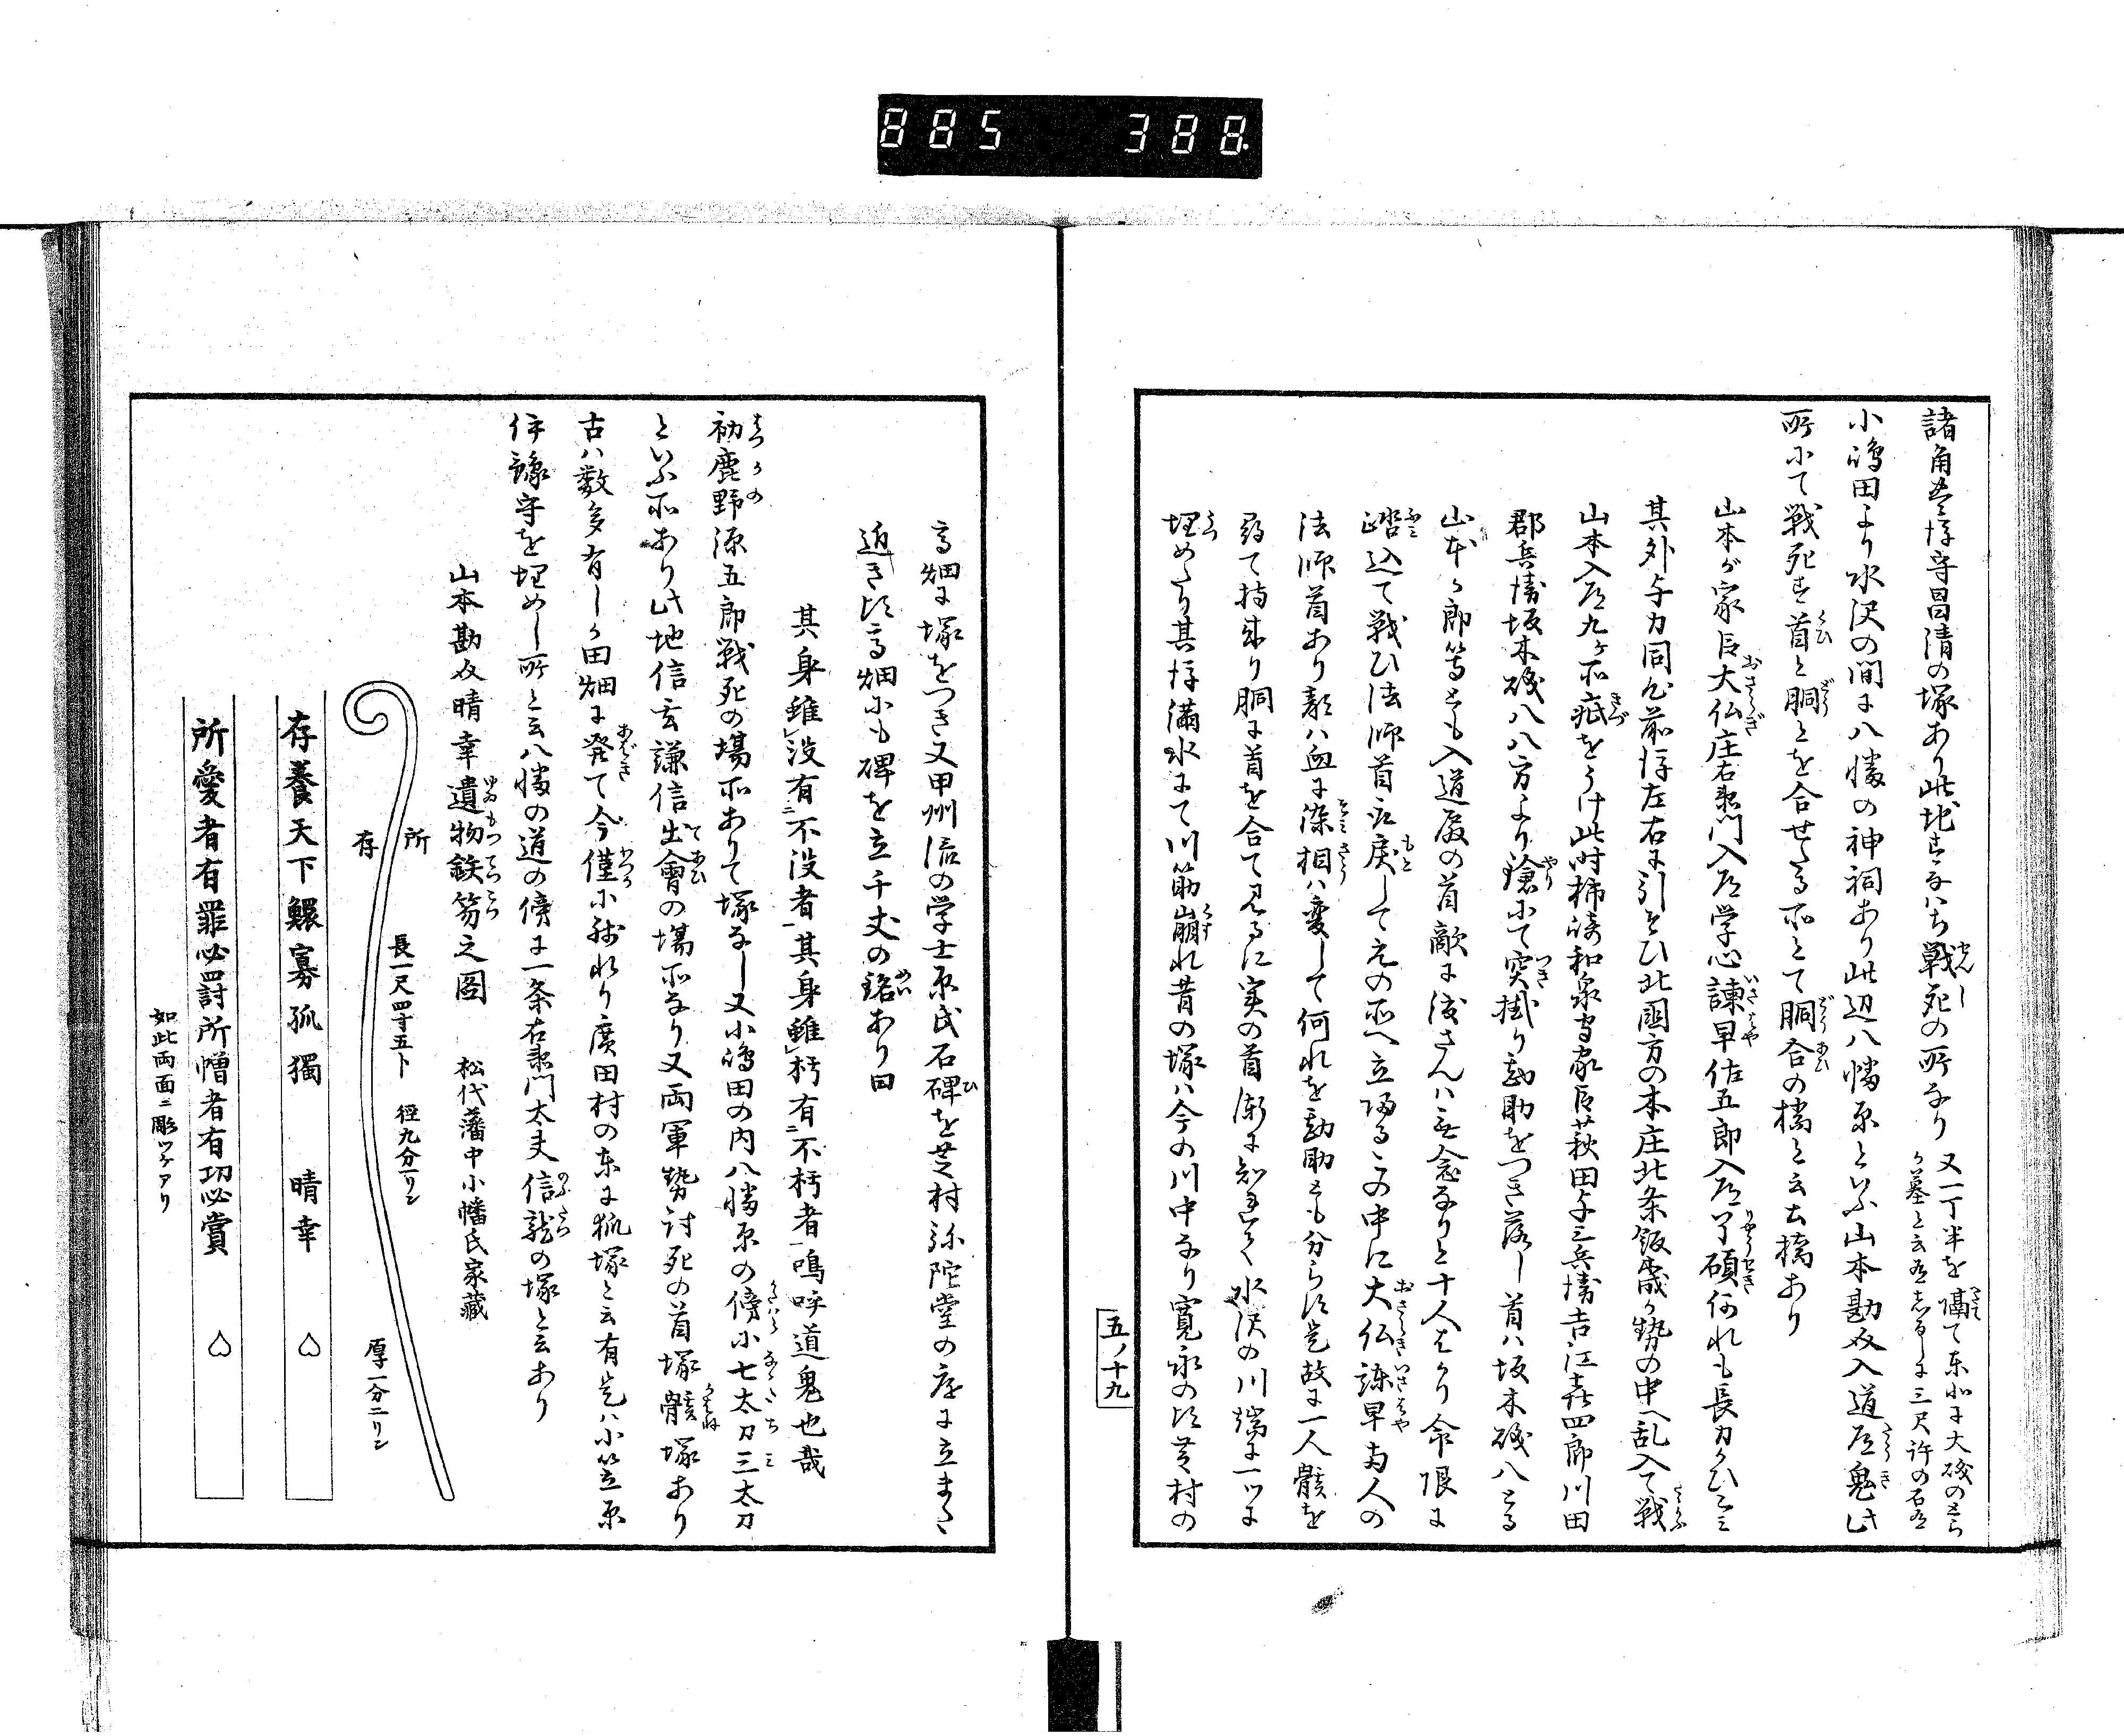 885 388
諸角豊後守昌清の塚あり此地すなハち戦死の所なり又一丁半を隔て東北に大磯のさち
か墓と云
三尺許の石
小嶋田より水沢の間に八幡の神祠あり此辺八幡原といふ山本勘介入道道鬼此
所にて戦死す首と胴とを合せたる所とて胴合の橋と云土橋あり
山本が家臣大仏庄右衛門入道学心諫早佐五郎入道了碩何れも長刀
其外与力同心前後左右に引そひ北国方の本庄北条
勢の中へ乱入て戦
山本入道九ヶ所疵をうけ此時柿崎和泉守家臣萩田与三兵衛吉江喜四郎川田
郡兵衛坂木磯八八方より鎗にて突掛り勘助をつき落し首ハ坂木磯八とる
山本か郎等とも入道殿の首敵に渡さんハ無念なりと十人はかり命限に
踏込て戦ひ法師首取戻して元の所へ立帰る
中に大仏諫早両人の
法師首あり顔ハ血に染相ハ変して何れを勘助とも分らす是故に一人骸を
尋て持来り胴に首を合て見るに実の首漸に知
水沢の川端に一ツに
埋めたり其後満水にて川筋崩れ昔の塚ハ今の川中なり寛永の頃芝村の
五ノ十九
高畑に塚をつき又甲州信の学士原氏石碑を芝村弥陀堂の庭に立
近き頃高畑にも碑を立千丈の銘あり曰
其身雖没有不没者其身雖朽有不朽者嗚呼道鬼也哉
初鹿野源五郎戦死の場所ありて塚なし又小嶋田の内八幡原の傍に七太刀三太刀
といふ所あり此地信玄謙信出會の場所なり又両軍勢討死の首塚骸塚あり
古ハ数多有しか田畑に発て今僅に残れり廣田村の東に狐塚と云有是ハ小笠原
伊豫守を埋めし所と云八幡の道の傍に一条右衛門太夫信龍の塚と云あり
山本勘介晴幸遺物鉄笏之図 松代藩中小幡氏家蔵
所
存
長一尺四寸五卜 径九分一リン
厚一分二リン
存養天下鰥寡孤獨 晴幸
所愛者有罪必罰所憎者有功必賞
如此両面ニ彫ツケアリ